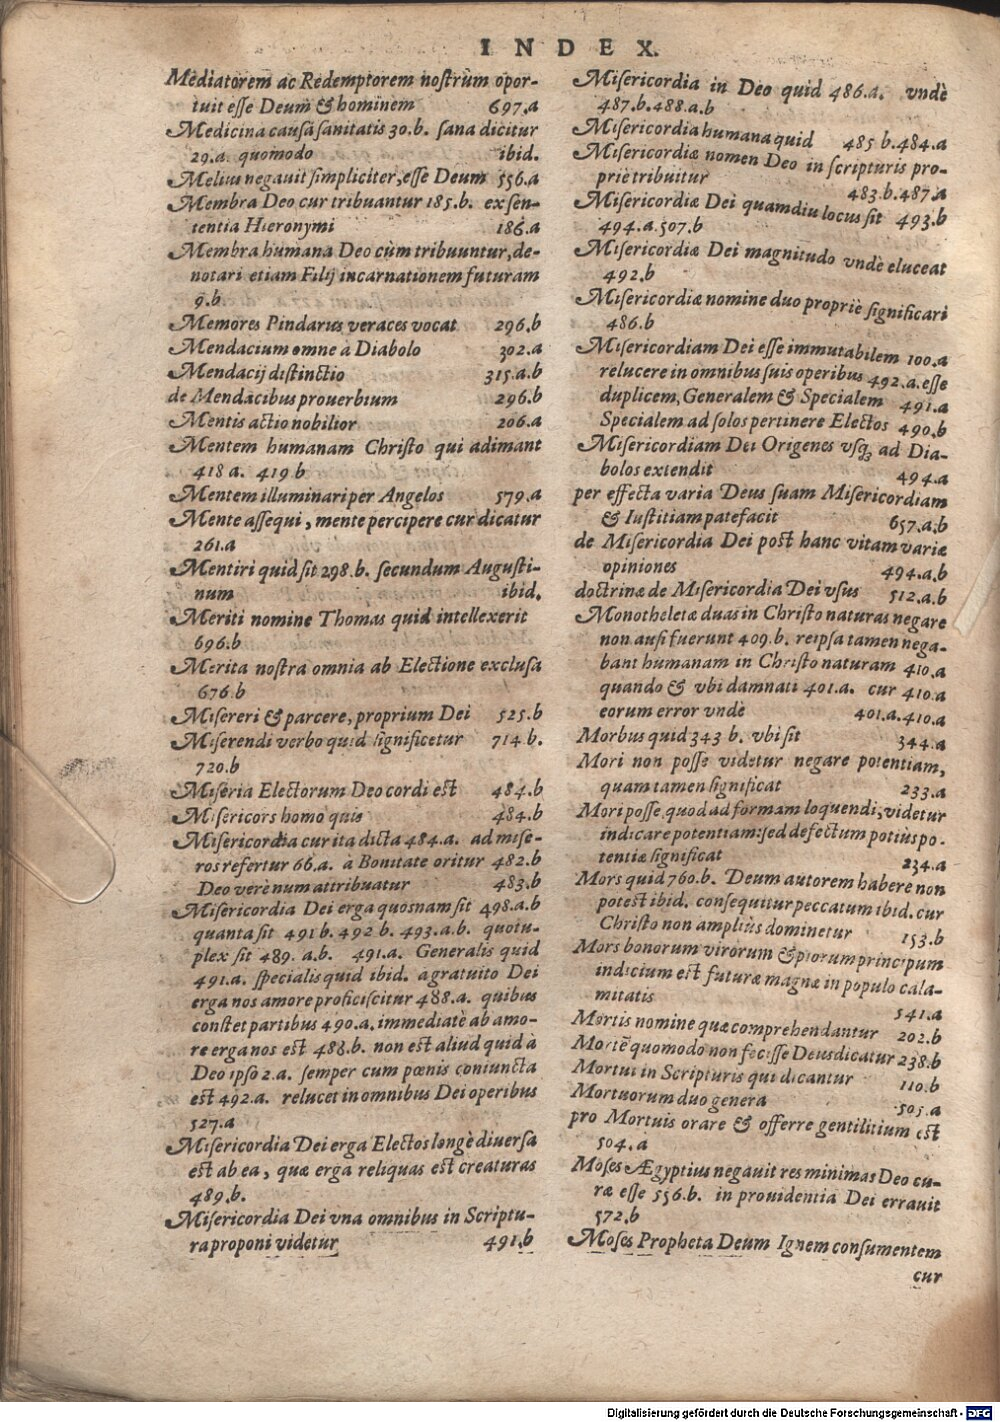 INDEX.
Mediatorem ac Redemptorem nostrum opor-
tuit esse Deum & hominem 697.a
Medicina causa sanitatis 30.b. sana dicitur
29.a. quomodo ibid.
Melius negauit simpliciter, esse Deum 556.a
Membra Deo cur tribuantur 185.b. ex sen-
tentia Hieronymi 186.a
Membra humana Deo cùm tribuuntur, de-
notari etiam Filij incarnationem futuram
9.b
Memores Pindarus veraces vocat 296.b
Mendacium omne à Diabolo 302.a
Mendacij distinctio 315.a.b
de Mendacibus prouerbium 296.b
Mentis actio nobilior 206.a
Mentem humanam Christo qui adimant
418 a. 419 b
Mentem illuminari per Angelos 579.a
Mente assequi, mente percipere cur dicatur
261.a
Mentiri quid sit 298.b. secundum Augusti-
num ibid.
Meriti nomine Thomas quid intellexerit
696.b
Merita nostra omnia ab Electione exclusa
676.b
Misereri & parcere, proprium Dei 525.b
Miserendi verbo quid significetur 714 b.
720.b
Miseria Electorum Deo cordi est 484.b
Misericors homo quis 484.b
Misericordia cur ita dicta 484.a. ad mise-
ros refertur 66.a. à Bonitate oritur 482.b
Deo verè num attribuatur 483.b
Misericordia Dei erga quosnam sit 498.a.b
quanta sit 491 b. 492 b. 493.a.b. quotu-
plex sit 489. a.b. 491.a. Generalis quid
491.a. specialis quid ibid. a gratuito Dei
erga nos amore proficiscitur 488.a. quibus
constet partibus 490.a. immediatè ab amo-
re erga nos est 488.b. non est aliud quid à
Deo ipso 2.a. semper cum pœnis coniuncta
est 492.a. relucet in omnibus Dei operibus
527.a
Misericordia Dei erga Electos longè diuersa
est ab ea, quæ erga reliquas est creaturas
489.b.
Misericordia Dei vna omnibus in Scriptu-
ra proponi videtur 491.b
Misericordia in Deo quid 486.a. vndè
487.b.488.a.b
Misericordia humana quid 485 b.484.a
Misericordiæ nomen Deo in scripturis pro-
priè tribuitur 483.b.487.a
Misericordiæ Dei quamdiu locus sit 493.b
494.a.507.b
Misericordiæ Dei magnitudo vndè eluceat
492.b
Misericordiæ nomine duo propriè significari
486.b
Misericordiam Dei esse immutabilem 100.a
relucere in omnibus suis operibus 492.a. esse
duplicem, Generalem & Specialem 491.a
Specialem ad solos pertinere Electos 490.b
Misericordiam Dei Origenes vsq́; ad Dia-
bolos extendit 494.a
per effecta varia Deus suam Misericordiam
& Iustitiam patefacit 657.a.b
de Misericordia Dei post hanc vitam variæ
opiniones 494.a.b
doctrinæ de Misericordia Dei vsus 512.a.b
Monotheletæ duas in Christo naturas negare
non ausi fuerunt 409.b. reipsa tamen nega-
bant humanam in Christo naturam 410.a
quando & vbi damnati 401.a. cur 410.a
eorum error vndè 401.a.410.a
Morbus quid 343 b. vbi sit 344.a
Mori non posse videtur negare potentiam,
quam tamen significat 233.a
Mori posse, quod ad formam loquendi, videtur
indicare potentiam: sed defectum potiùs po-
tentiæ significat 234.a
Mors quid 760.b. Deum autorem habere non
potest ibid. consequitur peccatum ibid. cur
Christo non ampliùs dominetur 153.b
Mors bonorum virorum & piorum principum
indicium est futuræ magnæ in populo cala-
mitatis 541.a
Mortis nomine quæ comprehendantur 202.b
Mortē quomodo non fecisse Deus dicatur 238.b
Mortui in Scripturis qui dicantur 110.b
Mortuorum duo genera 505.a
pro Mortuis orare & offerre gentilitium est
504.a
Moses Ægyptius negauit res minimas Deo cu-
ræ esse 556.b. in prouidentia Dei errauit
572.b
Moses Propheta Deum Ignem consumentem
cur
Digitalisierung gefördert durch die Deutsche Forschungsgemeinschaft - DFG